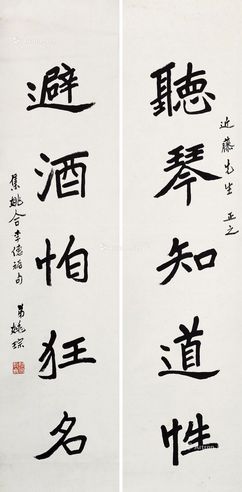 近藤先生 正之
聽琴知道性
避酒怕狂名
集姚合李德裕句
弟姚琮